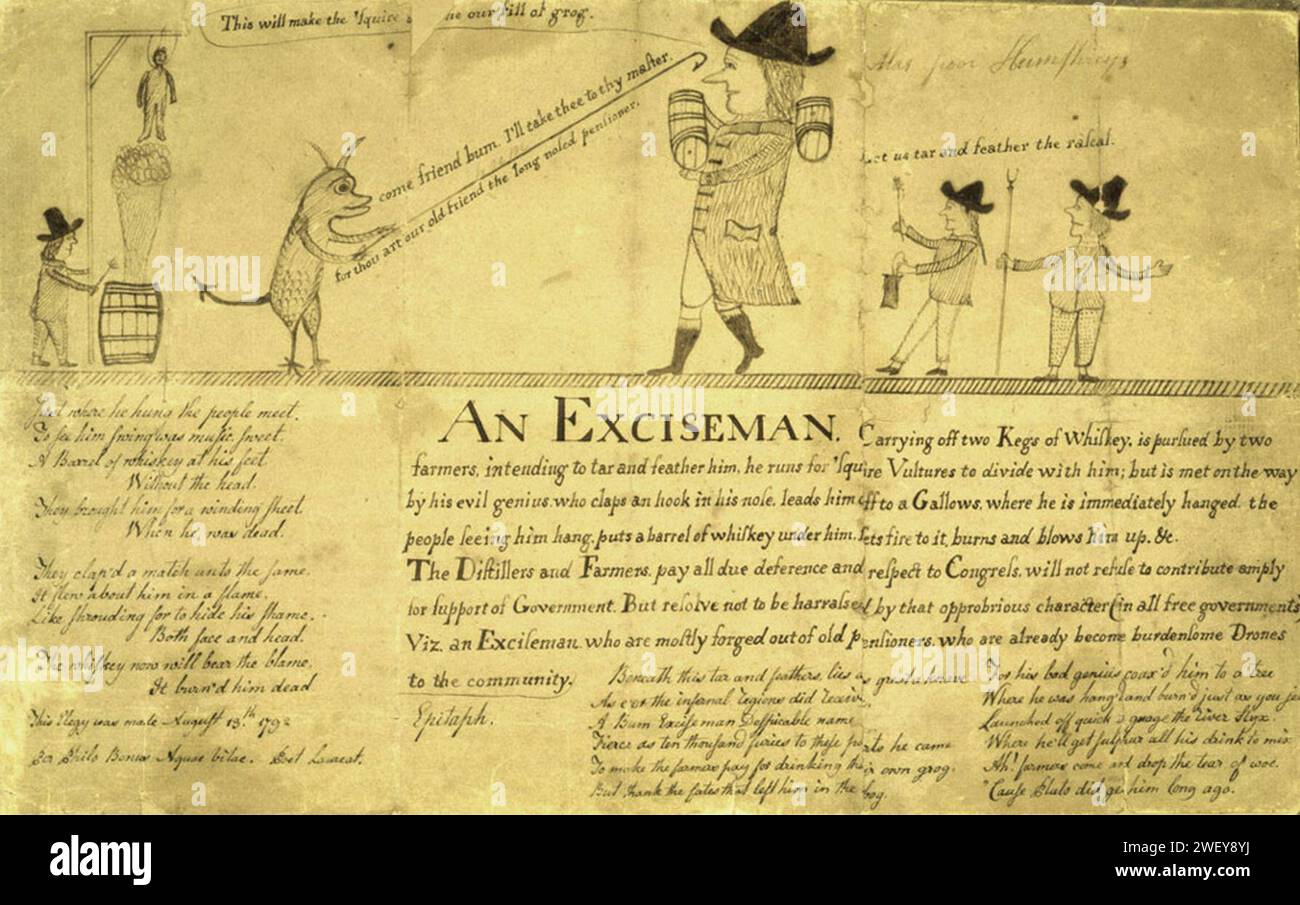 This will make the 'Squire
ne our fill of grog.
come friend bum. I'll take thee to thy maſter.
for thou art our old friend the long noſed penſioner.
Alas poor Humphreys
Let us tar and feather the raſcal.
AN EXCISEMAN. Carrying off two Kegs of Whiſkey, is purſued by two
farmers, intending to tar and feather him, he runs for 'Squire Vultures to divide with him; but is met on the way
by his evil genius, who claps an hook in his noſe, leads him off to a Gallows, where he is immediately hanged. the
people ſeeing him hang, puts a barrel of whiſkey under him, ſets fire to it, burns and blows him up. &c.
The Diſtillers and Farmers, pay all due deference and reſpect to Congreſs, will not refuſe to contribute amply
for ſupport of Government. But reſolve not to be harraſsed by that opprobrious character (in all free governments)
Viz. an Exciſeman, who are moſtly forged out of old penſioners, who are already become burdenſome Drones
to the community.
Juſt where he hung the people meet.
To ſee him ſwing was muſic ſweet.
A Barrel of whiskey at his feet
Without the head.
They brought him for a winding ſheet
When he was dead.
They clap'd a match unto the ſame.
It flew about him in a flame.
Like ſhrouding for to hide his ſhame.
Both face and head.
The whiſkey now will bear the blame.
It burn'd him dead
This Elegy was made August 13.th 1792
Per Philo Bonus Aquae vitae. Poet Laureat.
Epitaph.
Beneath this tar and feathers, lies as great a knave
As e'er the infernal legions did receive
A Bum Exciſeman deſpicable name
Fierce as ten thouſand furies to theſe parts he came
To make the farmers pay for drinking their own grog.
But thank the fates that left him in the bog.
For his bad genius coax'd him to a tree
Where he was hang'd and burn'd juſt as you ſee
Launched off quick to guage the River Styx.
Where he'll get ſulphur all his drink to mix
Ah! farmers come and drop the tear of woe.
'Cauſe Pluto did get him long ago.
a
alamy
alamy
Image ID: 2WEY8YJ
www.alamy.com